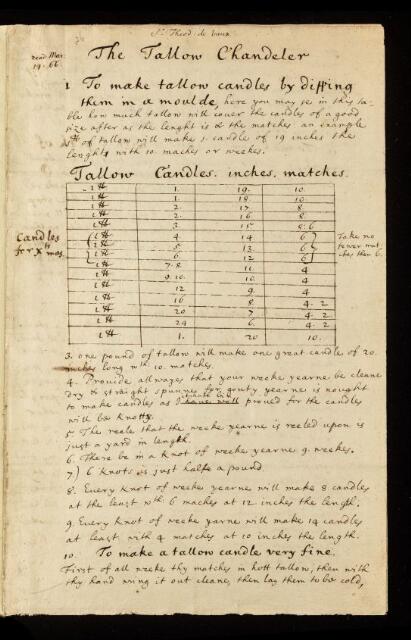 Sr Theod: de vaux
read Mar.
19. 66.
The Tallow Chandeler
1 To make tallow candles by dipping
them in a moulde, here you may se in this ta-
ble how much tallow will couer the candles of a good
size after as the lenght is & the matches an example
of tallow will make 1. candle of 19 inches the
lenght with 10. maches or weekes.
Tallow Candles. inches. matches.
1 ℔ 1. 19. 10.
1 ℔ 1. 18. 10
1 ℔ 2 17 8
1 ℔ 2. 16 8
1 ℔ 3 15 8. 6
1 ℔ 4. 14 6
1 ℔ 5. 13 6
1 ℔ 6 12 6
1 ℔ 7. 8 11 4
1 ℔ 9. 10. 10 4
1 ℔ 12 9. 4
1 ℔ 16 8. 4. 2
1 ℔ 20 7 4. 2
1 ℔ 24 6. 4. 2
1 ℔ 1. 20 10.
Candles
for Xmas
Take no
fewer mat
ches then 6.
3. one pound of tallow will make one great candle of 20
inches long wth 10. matches
4. Provide allwayes that your weeke yearne be cleane
dry & straight spunne for gouty yearne is nought
to make candles as I have well proued for the candles
will be knotty.
5. The reele that the weeke yearne is reeled upon is
just a yard in lenght.
6. There be in a knot of weeke yearne 9. weekes.
7) 6 knots is just halfe a pound
8. Every knot of weeke yearne will make 8 candles
at the least wth 6 maches at 12 inches the lenght.
9. Every knot of weeke yarne will make 14 candles
at least with 4 matches at 10 inches the lenght.
10. To make a tallow candle very fine.
First of all weeke thy matches in hott tallow, then with
thy hand wring it out cleane, then lay them to be cold,